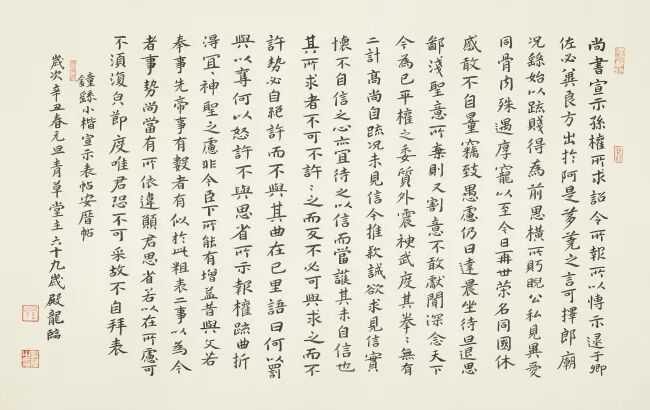 尚書宣示孫權所求詔令所報所以博示逮于卿
佐必冀良方出於阿是芻蕘之言可擇郎廟
況繇始以疏賤得為前思橫所眄睨公私見異愛
同骨肉殊遇厚寵以至今日再世榮名同國休
慼敢不自量竊致愚慮仍日達晨坐待旦退思
鄙淺聖意所棄則又割意不敢獻聞深念天下
今為已平權之委質外震神武度其拳〻無有
二計高尚自疏況未見信今推款誠欲求見信實
懷不自信之心亦宜待之以信而當護其未自信也
其所求者不可不許〻之而反不必可與求之而不
許勢必自絕許而不與其曲在己里語曰何以罰
與以奪何以怒許不與思省所示報權疏曲折
得宜〻神聖之慮非今臣下所能有增益昔與文若
奉事先帝事有數者有似於此粗表二事以為今
者事勢尚當有所依違願君思省若以在所慮可
不須復皃節度唯君恐不可采故不自拜表
鐘繇小楷宣示表帖安厝帖
歲次辛丑春元旦青草堂主六十九歲殿龍臨